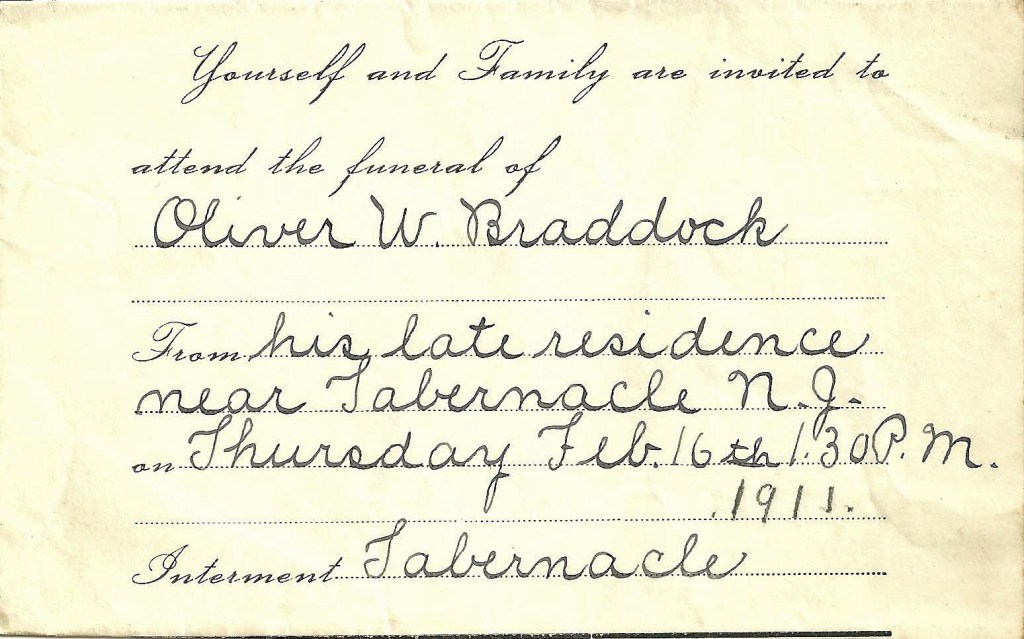 Yourself and Family are invited to
attend the funeral of
Oliver W. Braddock
From his late residence
near Tabernacle N.J.
on Thursday Feb. 16th 1.30 P.M.
1911.
Interment Tabernacle